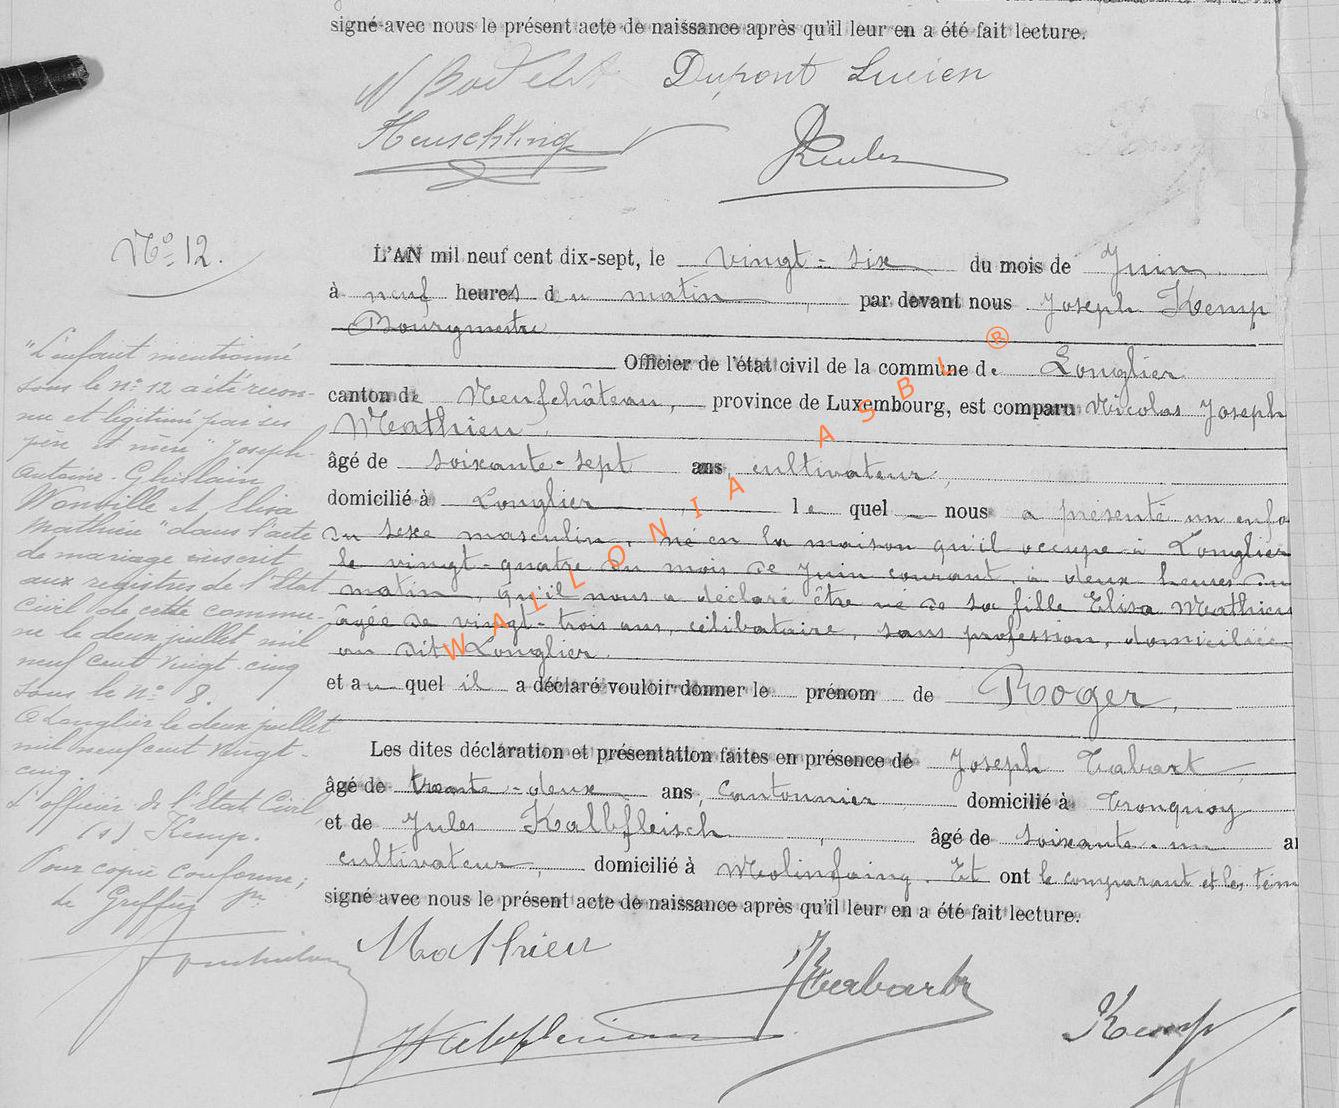 signé avec nous le présent acte de naissance après qu'il leur en a été fait lecture.
Dupont Lucien
Heuschling
No 12.
L'AN mil neuf cent dix-sept, le vingt-six du mois de Juin
à neuf heures du matin, par devant nous Joseph Kemp
Bourgmestre
Officier de l'état civil de la commune de Longlier
canton de Neufchâteau, province de Luxembourg, est comparu Nicolas Joseph
Mathieu,
âgé de soixante-sept ans, cultivateur,
domicilié à Longlier le quel nous a présenté un enfa
du sexe masculin, né en la maison qu'il occupe à Longlier
le vingt-quatre du mois de Juin courant, à deux heures du
matin, qu'il nous a déclaré être né de sa fille Elisa Mathieu
âgée de vingt-trois ans, célibataire, sans profession, domiciliée
au dit Longlier.
et au quel il a déclaré vouloir donner le prénom de Roger,
Les dites déclaration et présentation faites en présence de Joseph Tabart,
âgé de trente-deux ans, cantonnier domicilié à Tronquoy
et de Jules Kalbfleisch, âgé de soixante-un a
cultivateur, domicilié à Molinfaing. Et ont le comparant et les tém
signé avec nous le présent acte de naissance après qu'il leur en a été fait lecture.
Mathieu
Tabart
Kemp
"L'enfant mentionné
sous le no 12 a été recon-
nu et légitimé par ses
père et mère "Joseph-
Antoine-Ghislain
Wonville et Elisa
Mathieu" dans l'acte
de mariage inscrit
aux registres de l'Etat
Civil de cette commu-
ne le deux juillet mil
neuf cent vingt-cinq
sous le no 8.
A Longlier le deux juillet
mil neuf cent vingt
cinq.
L'officier de l'Etat Civil,
(s) Kemp.
Pour copie conforme;
Le Greffier
WALLONIA ASBL ®